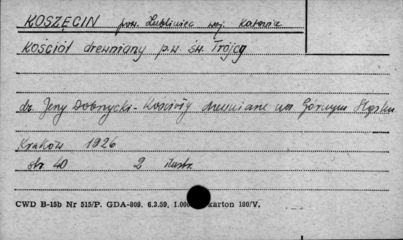 KOSZĘCIN pow. Lubliniec woj. Katowice
Kościół drewniany p.w. św. Trójcy
dr Jerzy Dobrzycki - Kościoły drewniane na Górnym Śląsku
Kraków 1926
str 40 2 ilustr.
CWD B-15b Nr 515/P. GDA-809. 6.3.59. 1.000 karton 180/V.